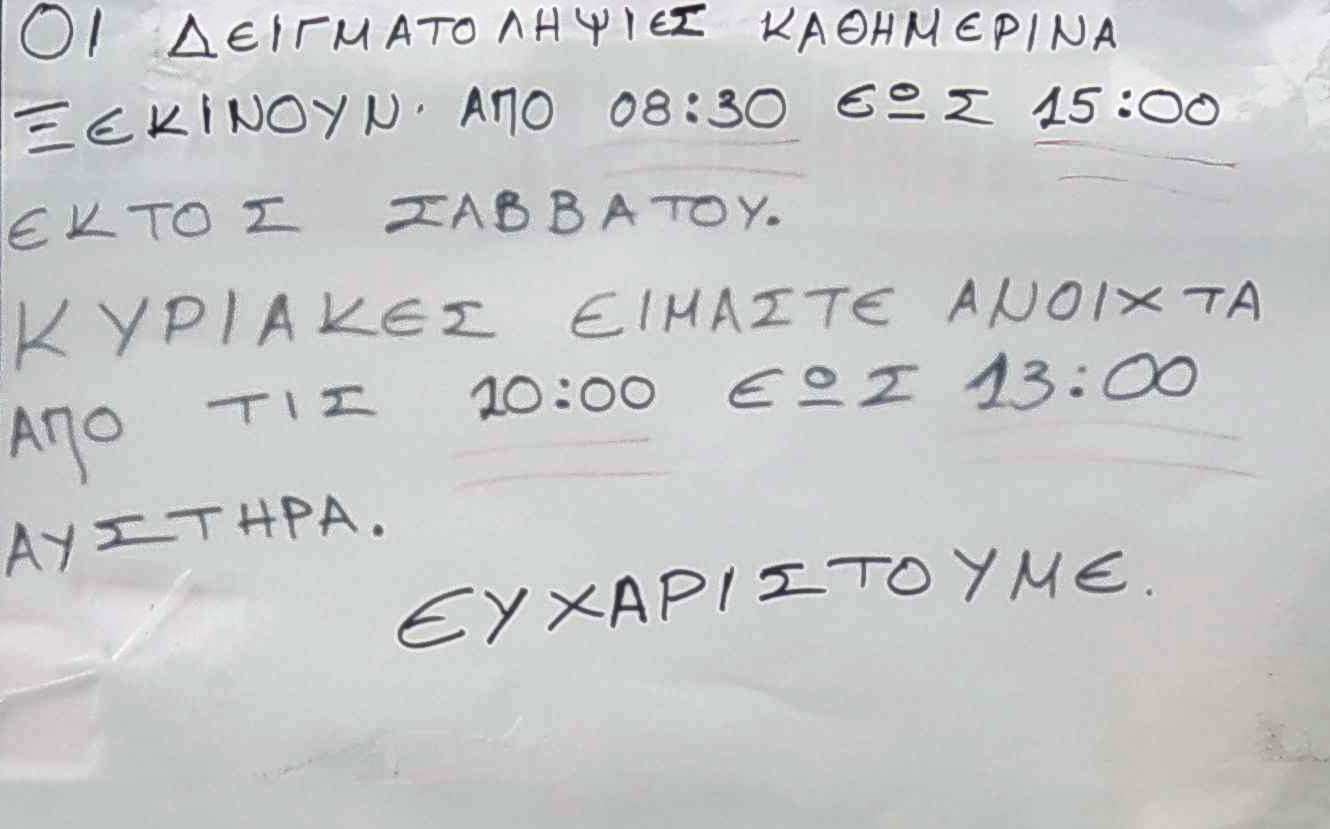 ΟΙ ΔΕΙΓΜΑΤΟΛΗΨΙΕΣ ΚΑΘΗΜΕΡΙΝΑ
ΞΕΚΙΝΟΥΝ. ΑΠΟ 08:30 ΕΩΣ 15:00
ΕΚΤΟΣ ΣΑΒΒΑΤΟΥ.
ΚΥΡΙΑΚΕΣ ΕΙΜΑΣΤΕ ΑΝΟΙΧΤΑ
ΑΠΟ ΤΙΣ 10:00 ΕΩΣ 13:00
ΑΥΣΤΗΡΑ.
ΕΥΧΑΡΙΣΤΟΥΜΕ.